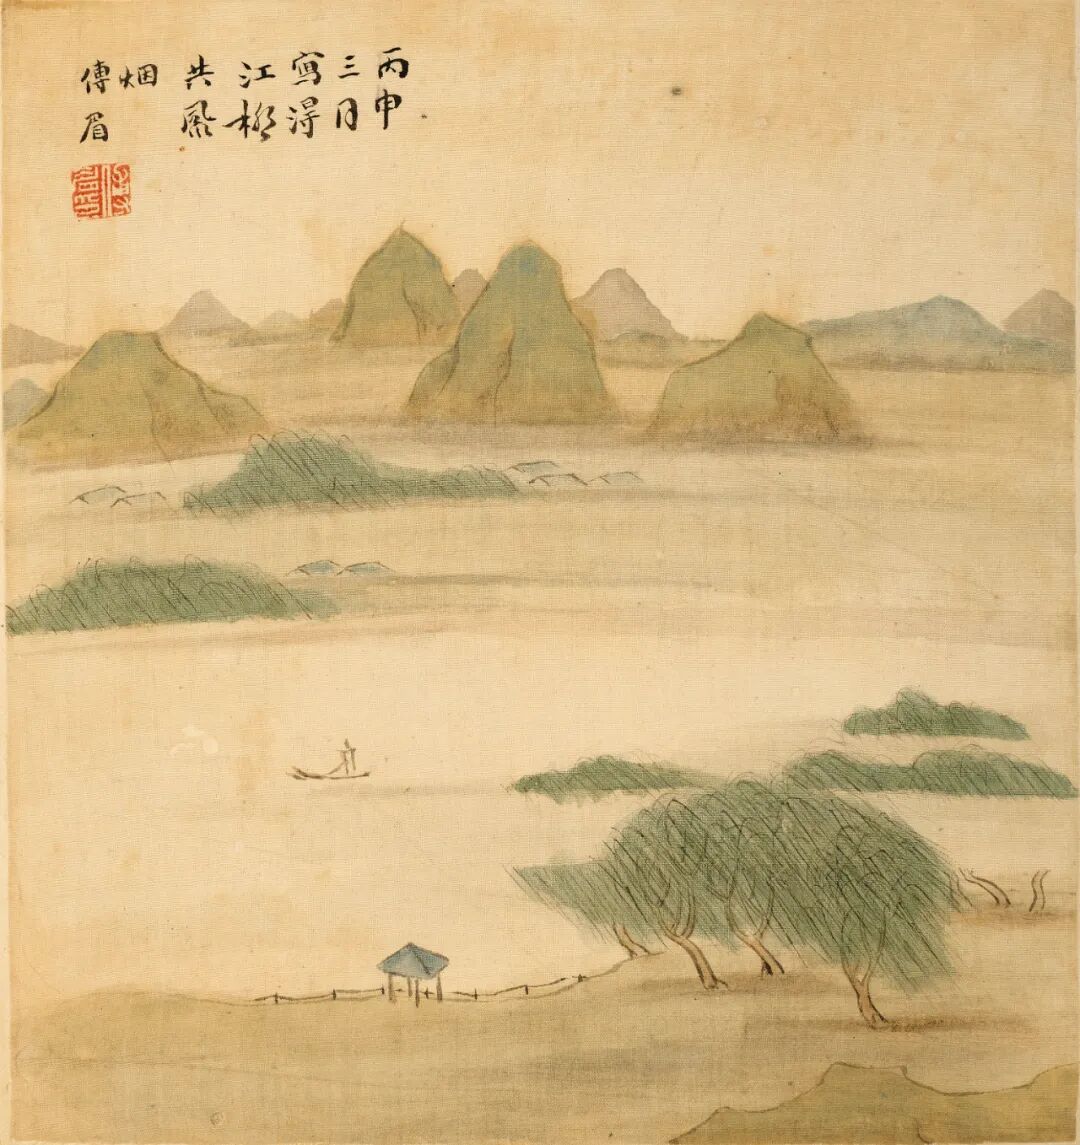 丙申
三月
寫得
江柳
共風
烟
傅眉